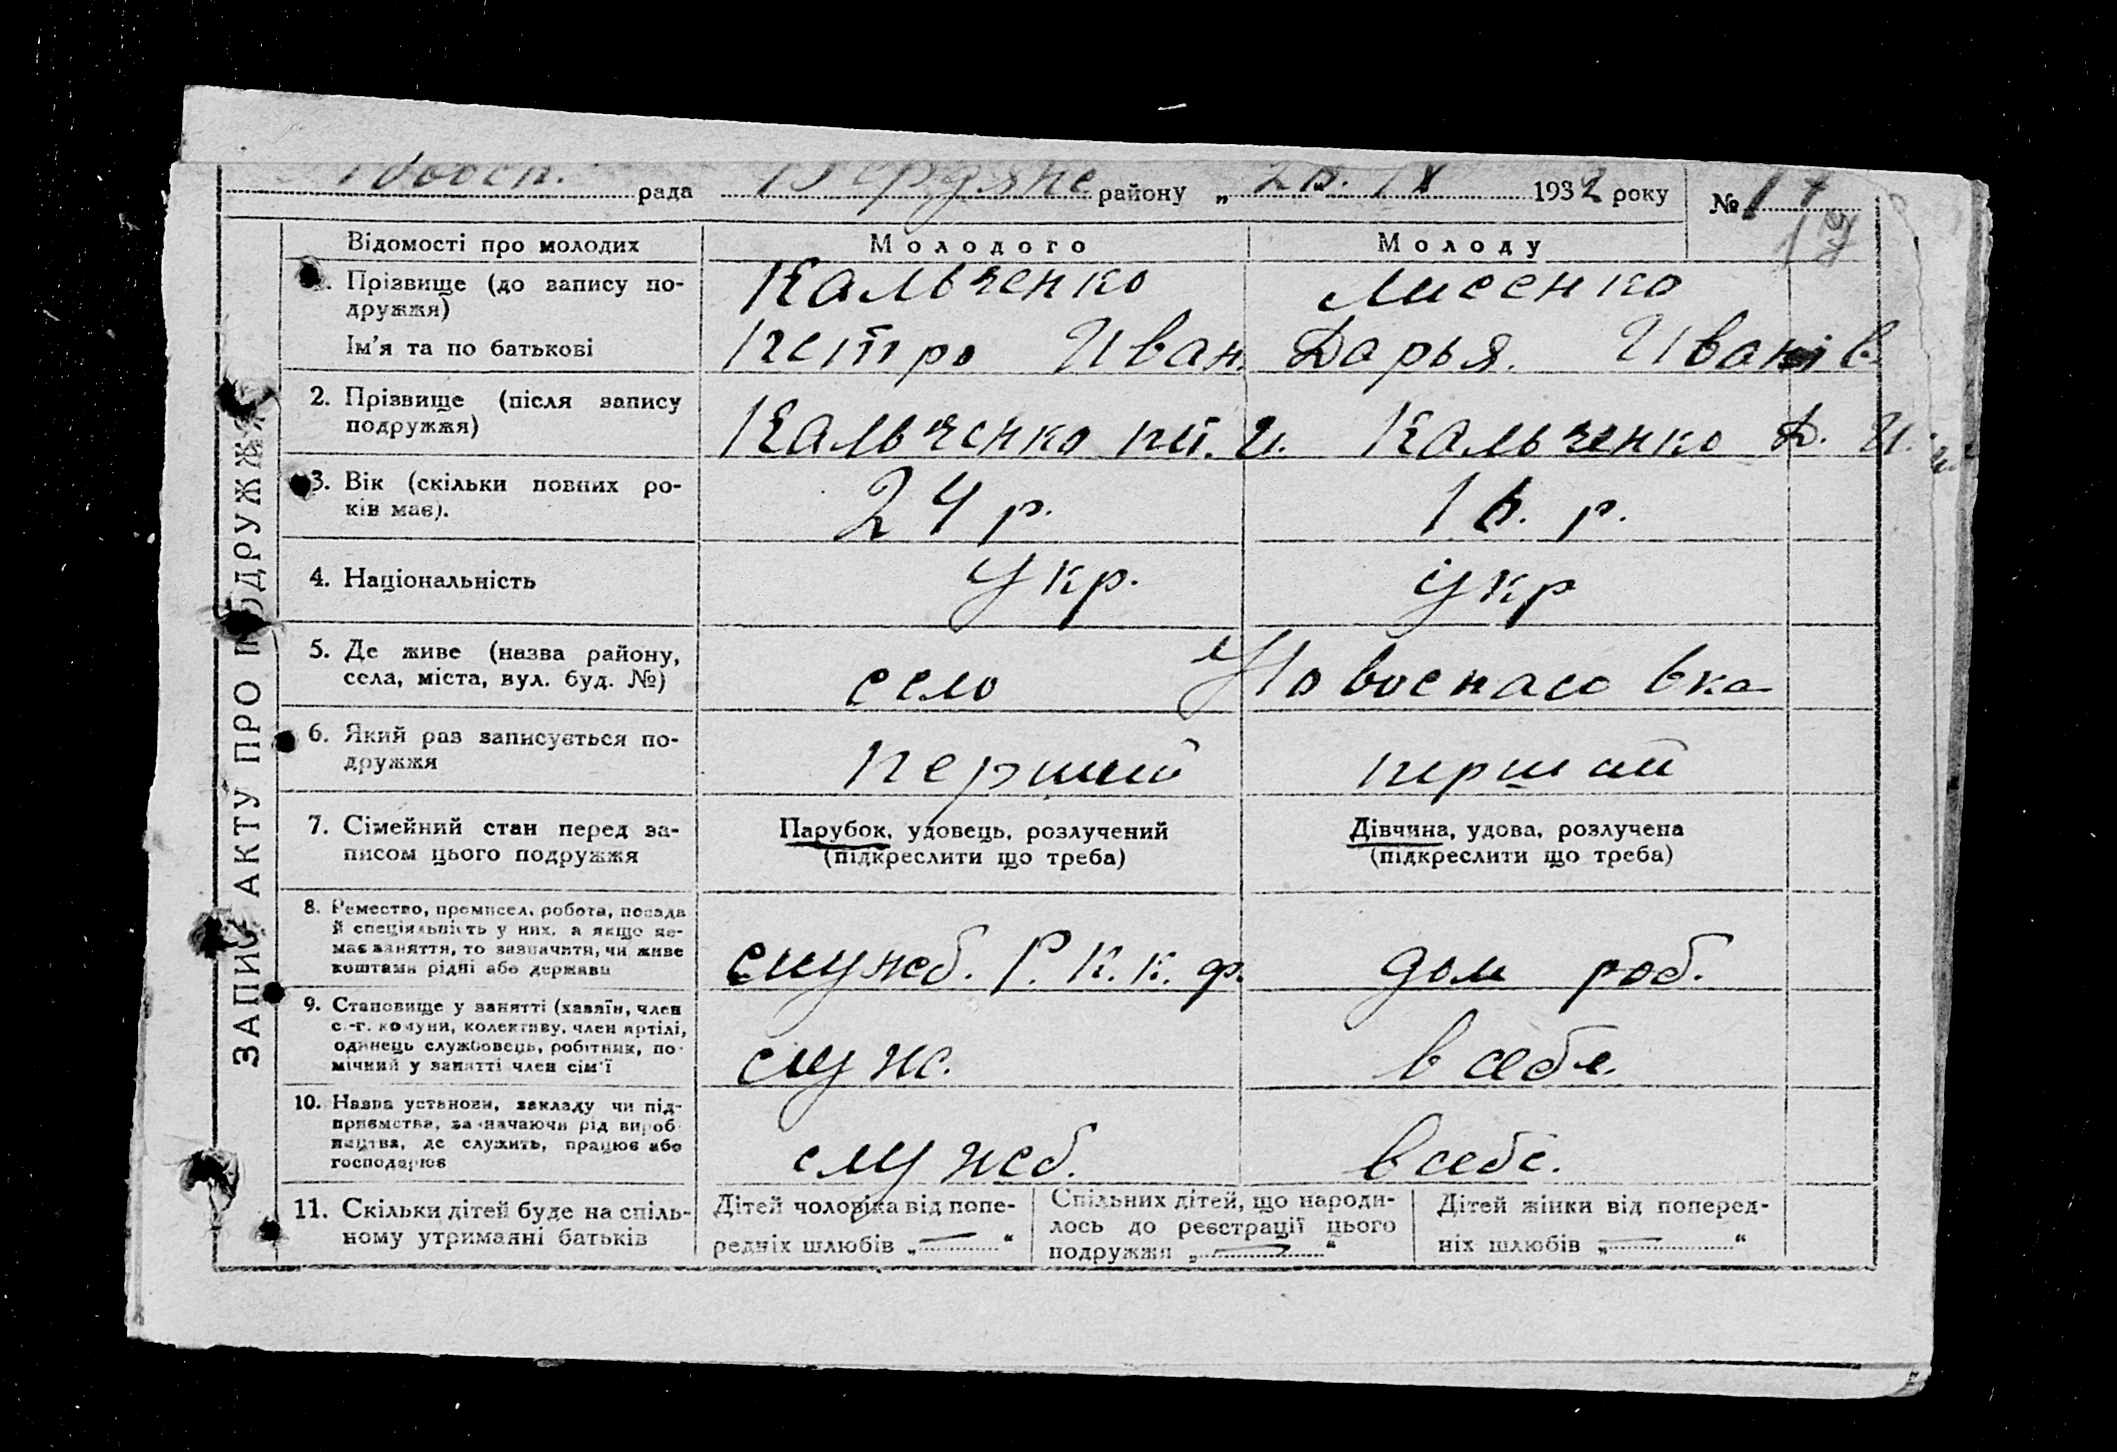 Новосп. рада Бердянс району „ IX 1932 року № 17
19
ЗАПИС АКТУ ПРО ПОДРУЖЖЯ
Відомості про молодих Молодого Молоду
Прізвище (до запису по-
дружжя) Кальченко Лисенко
Ім'я та по батькові Петро Иван. Дарья. Иванів.
2. Прізвище (після запису
подружжя) Кальченко П. И. Кальченко Д. И.
3. Вік (скільки повних ро-
ків має). 24 р. р.
4. Національність Укр. Укр
5. Де живе (назва району,
села, міста, вул. буд. №) село Новоспасовка
6. Який раз записується по-
дружжя перший перший
7. Сімейний стан перед за-
писом цього подружжя
Парубок, удовець, розлучений
(підкреслити що треба)
Дівчина, удова, розлучена
(підкреслити що треба)
8. Ремество, промисел, робота, посада
й спеціяльність у них, а якщо не-
має заняття, то зазначити, чи живе
коштами рідні або держави
служб. Р. К. К. Ф. дом роб.
9. Становище у занятті (хазяїн, член
с.-г. комуни, колективу, член артілі,
одинець службовець, робітник, по-
мічний у занятті член сім'ї
служ. в себе.
10. Назва установи, закладу чи під-
приємства, зазначаючи рід вироб-
ництва, де служить, працює або
господарює
служб. в себе.
11. Скільки дітей буде на спіль-
ному утриманні батьків
Дітей чоловіка від попе-
редніх шлюбів „—“
Спільних дітей, що народи-
лось до реєстрації цього
подружжя „—“
Дітей жінки від поперед-
ніх шлюбів „—“